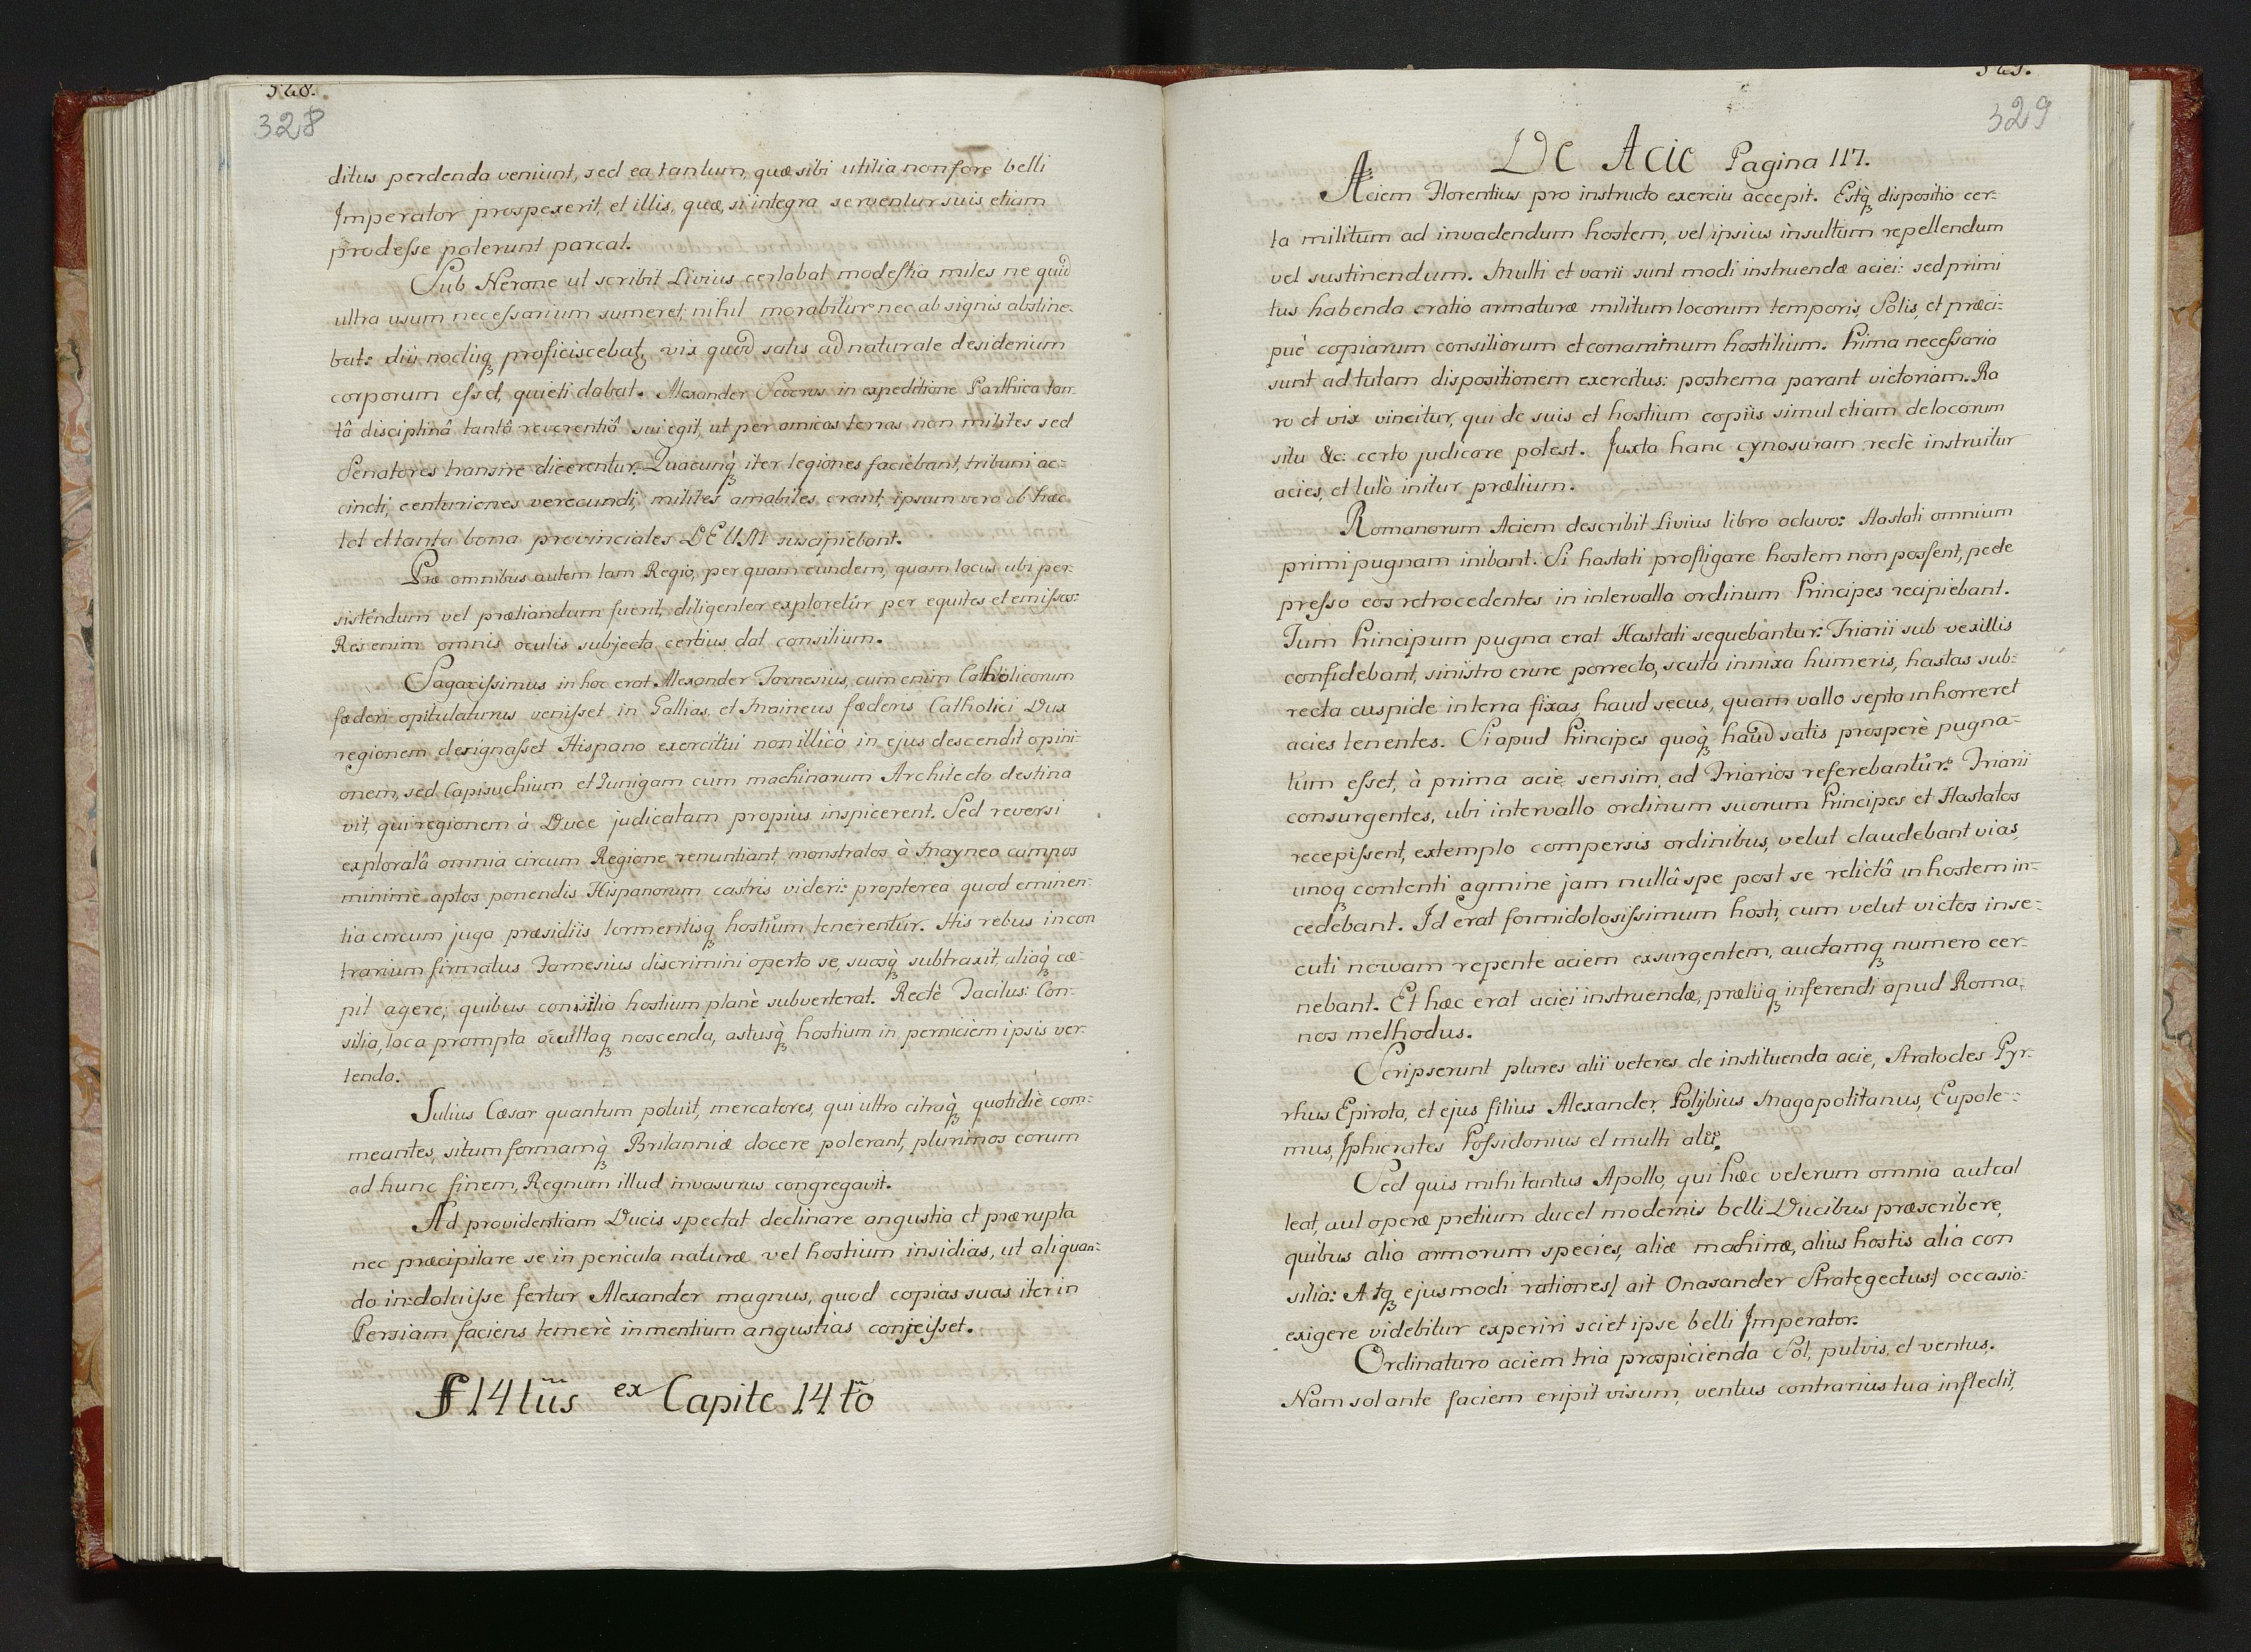 328.
328
ditus perdenda veniunt, sed ea tantum, quæ sibi utilia non fore belli
Imperator prospexerit, et illis, quæ, si integra serventur suis etiam
prodeſse poterunt parcat.
Sub Nerone ut scribit Livius certabat modeſtia miles ne quid
ultra usum neceſsarium sumeret; nihil morabitur nec ab signis abstine-
bat: diù noctuq₃ proficiscebat, vix quod satis ad naturale desiderium
corporum eſset, quieti dabat. Alexander Severus in expeditione Parthica tan-
tâ disciplinâ tantâ reverentiâ sui egit, ut per amicas terras non milites sed
Senatores transire dicerentur. Quacunq₃ iter legiones faciebant, tribuni ac-
cincti, centuriones verecundi, milites amabiles erant, ipsum vero ob hæc
tot et tanta bona provinciales DEUM suscipiebant.
Præ omnibus autem tam Regio, per quam eundem, quam locus ubi per-
sistendum vel præliandum fuerit, diligenter exploretur per equites et emiſsos:
Res enim omnis oculis subjecta certius dat consilium.
Sagaciſsimus in hoc erat Alexander Farnesius, cum enim Catholicorum
fæderi opitulaturus veniſset in Gallias, et Maineus fæderis Catholici Dux
regionem designaſset Hispano exercitui non illicò in ejus descendit opini-
onem, sed Capisuchium et Zunigam cum machinarum Architecto destina
vit, qui regionem à Duce judicatam propius inspicerent. Sed reversi
exploratâ omnia circum Regione renuntiant monstratos à Mayneo campos
minimè aptos ponendis Hispanorum castris videri: propterea quod eminen-
tia circum juga præsidiis tormentisq₃ hostium tenerentur. His rebus in con
trarium firmatus Farnesius discrimini operto se, suosq₃ subtraxit, aliaq₃ cæ-
pit agere; quibus consilia hostium planè subverterat. Rectè Tacitus: Con-
silia, loca prompta occultaq₃ noscenda, astusq₃ hostium in perniciem ipsis ver-
tenda.
Julius Cæsar quantum potuit, mercatores, qui ultro citraq₃ quotidiè com-
meantes, situm formamq₃ Britanniæ docere poterant, plurimos eorum
ad hunc finem, Regnum illud invasurus congregavit.
Ad providentiam Ducis spectat declinare angustia et prærupta
nec præcipitare se in pericula naturæ vel hostium insidias, ut aliquan-
do indoluiſse fertur Alexander magnus, quod copias suas iter in
Persiam faciens temerè in mentium angustias conjeiſset.
§ 14tus ex Capite 14to
329.
329
De Acie Pagina 117.
Aciem Florentius pro instructo exerciu accepit. Estq₃ dispositio cer-
ta militum ad invadendum hostem, vel ipsius insultum repellendum
vel sustinendum. Multi et varii sunt modi instruendæ aciei: sed primi
tus habenda eratio armaturæ militum locorum temporis, Solis, et præci-
puè copiarum consiliorum et conaminum hostilium. Prima neceſsaria
sunt ad tutam dispositionem exercitus: postrema parant victoriam. Ra
ro et vix vincitur, qui de suis et hostium copiis simul etiam de locorum
situ &c: certo judicare potest. Juxta hanc cynosuram rectè instruitur
acies, et tutò initur prælium.
Romanorum Aciem describit Livius libro octavo: Hastati omnium
primi pugnam inibant. Si hastati profligare hostem non poſsent, pede
preſso eos retrocedentes in intervalla ordinum Principes recipiebant.
Tum Principum pugna erat Hastati sequebantur: Triarii sub vexillis
confidebant, sinistro crure porrecto, scuta innixa humeris, hastas sub-
recta cuspide in terra fixas, haud secus, quam vallo septo inhorreret
acies tenentes. Si apud Principes quoq₃ haud satis prosperè pugna-
tum eſset, à prima acie sensim ad Triarios referebantur: Triarii
consurgentes, ubi intervallo ordinum suorum Principes et Hastatos
recepiſsent, extemplo compersis ordinibus, velut claudebant vias,
unoq₃ contenti agmine jam nullâ spe post se relictâ in hostem in-
cedebant. Id erat formidolosiſsimum hosti, cum velut victos inse-
cuti novam repente aciem exsurgentem, auctamq₃ numero cer-
nebant. Et hæc erat aciei instruendæ, præliiq₃ inferendi apud Roma-
nos methodus.
Scripserunt plures alii veteres de instituenda acie, Stratocles Pyr-
rhus Epirota, et ejus filius Alexander, Polÿbius Magapolitanus, Eupole-
mus, Iphicrates Poſsidonius et multi alii.
Sed quis mihi tantus Apollo, qui hæc veterum omnia aut cal
leat, aut operæ pretium ducet modernis belli Ducibus præscribere,
quibus alia armorum species, aliæ machinæ, alius hostis alia con
silia: Atq₃ ejusmodi rationes/ ait Onasander Strategectus:/ occasio:
exigere videbitur experiri sciet ipse belli Imperator.
Ordinaturo aciem tria prospicienda Sol, pulvis, et ventus.
Nam sol ante faciem eripit visum, ventus contrarius tua inflectit,